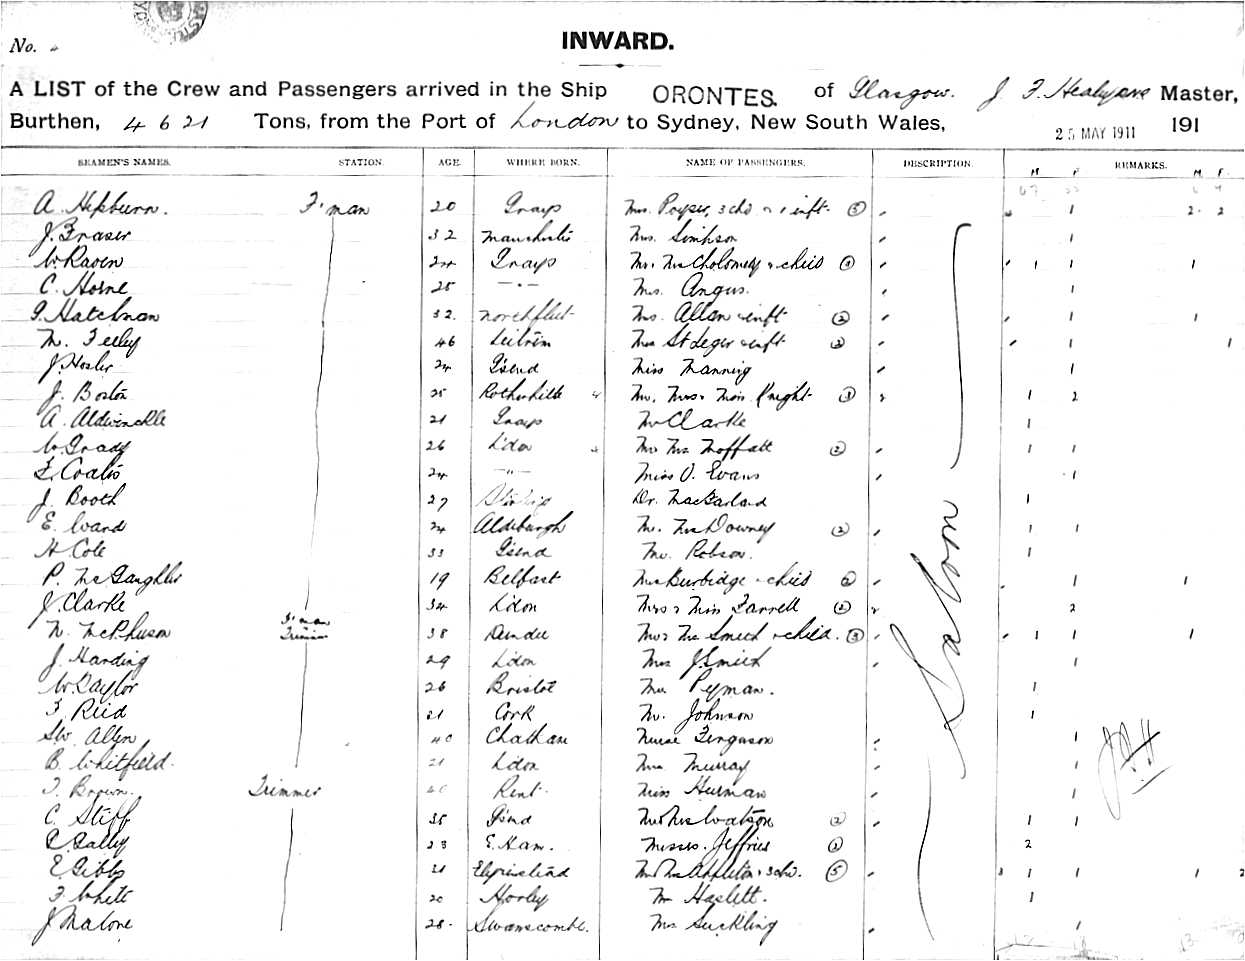 No.
INWARD.
A LIST of the Crew and Passengers arrived in the Ship ORONTES. of Glasgow. J. F. Healy Master,
Burthen, 4621 Tons, from the Port of London to Sydney, New South Wales, 25 MAY 1911 191
SEAMEN'S NAMES. STATION. AGE. WHERE BORN. NAME OF PASSENGERS. DESCRIPTION. REMARKS.
M F M F
A. Hepburn. F'man 20 Grays Mrs. 3 chd & 1 inft. 5 1 2 2
J. Fraser 32 Manchester Mrs. Simpson 1
W. Raven 24 Grays Mr. Mrs Cholomey & child 3 1 1 1
C. Horne 25 —·— Mrs. Angus. 1
Hatchman 32 Northfleet Mrs. Allan & inft 2 1 1
M. Feeley 46 Leitrim Mrs St Leger & inft 2 1 1
J. Hosler 24 G'send Miss Manning 1
J. Boston 25 Rotherhithe Mr. Mrs. & Miss Knight 3 1 2
A. Aldwinckle 21 Grays Mr Clarke 1
W. Grady 26 L'don Mr Mrs Moffatt 2 1 1
F. Coates 24 —"— Miss O. Evans 1
J. Booth 27 Stirling Dr. MacFarland 1
E. Ward 24 Aldeburgh Mr. Mrs Downey 2 1 1
H Cole 33 G'send Mr. Robson. 1
P. McGaughlin 19 Belfast Mrs Burbidge & child 2 1 1
J. Clarke 34 L'don Mrs & Miss Farrell 2 2
N. McPherson F'man Trimmer 38 Dundee Mr & Mrs Smith & child. 3 1 1 1
J. Harding 29 L'don Mrs J. Smith 1
W. Taylor 26 Bristol Mr. Pyman. 1
F. Reid 21 Cork Mr. Johnson 1
Allen 40 Chatham Nurse Ferguson 1
B. Whitfield. 21 L'don Mrs Murray 1
F. Brown. Trimmer 40 Kent Miss Herman 1
C. Stiff 35 G'snd Mr & Mrs Watson 2 1 1
Gally 23 E. Ham. Misses. Jeffries 2 2
E Gibbs 21 Mr Mrs Appleton & 3 chd. 5 1 1 1 2
F. White 20 Horley Mr Haslett. 1
J Malone 28. Swanscombe. Mrs Suckling 1
Saloon